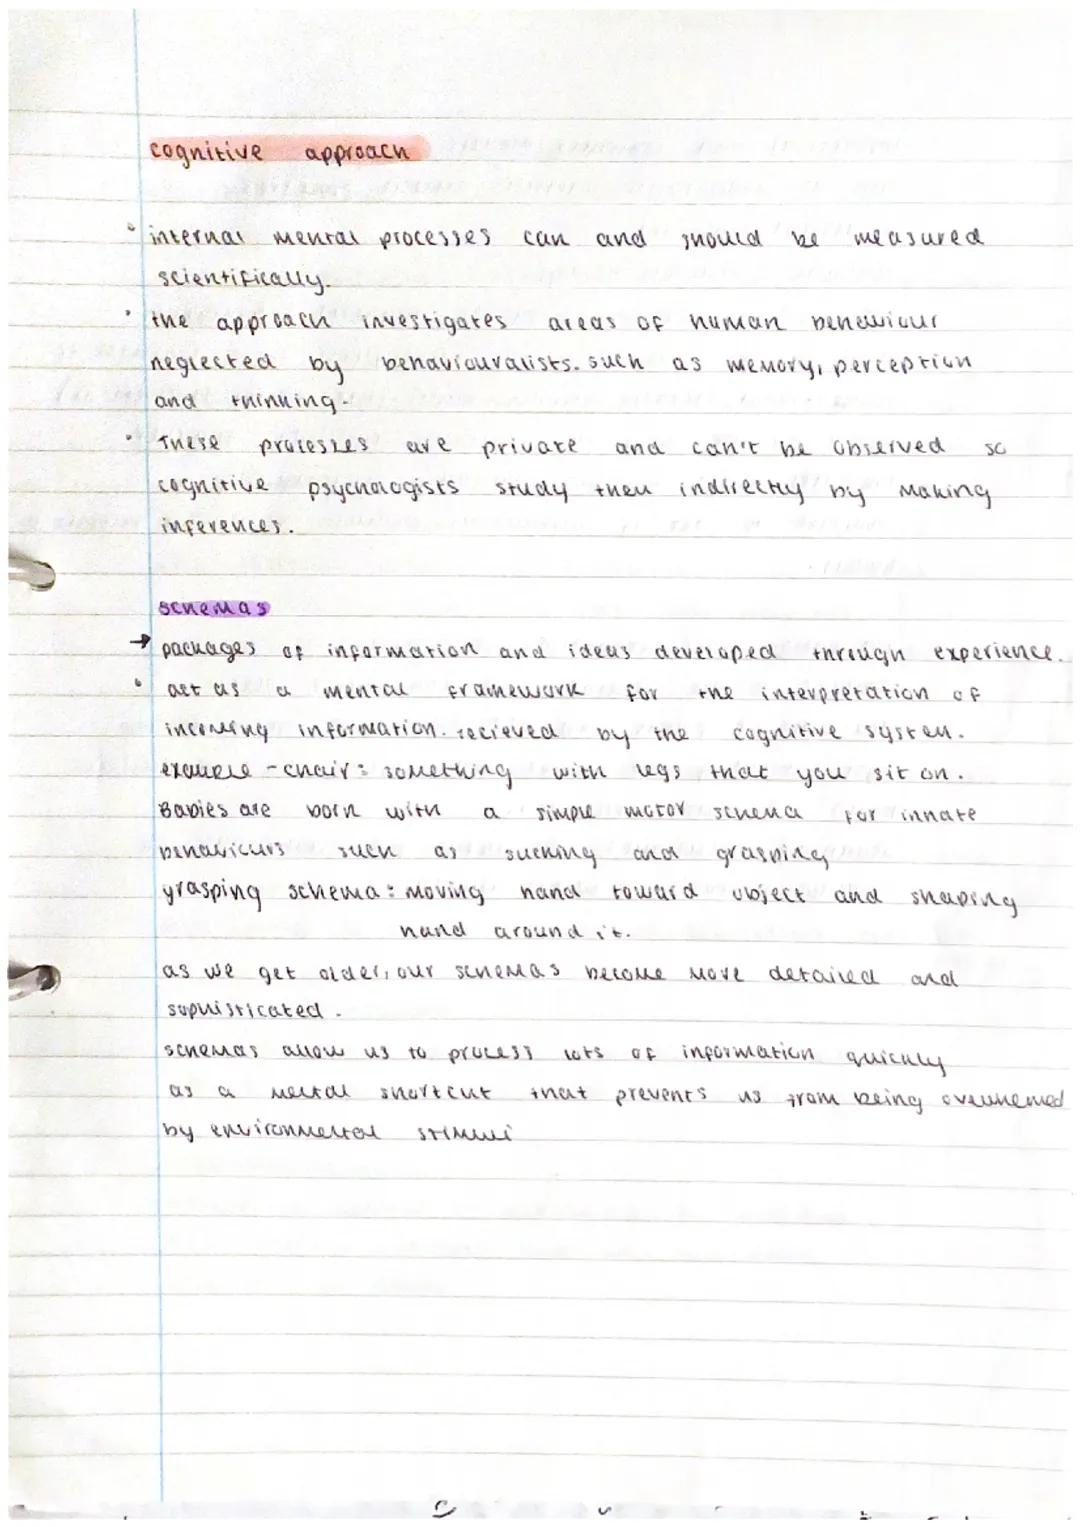 cognitive approach
• internal mental processes can and should be measured
scientifically.
• the approach investigates areas of human behaviour
neglected by behaviouralists. such as memory, perception
and thinking.
• These processes are private and can't be observed so
cognitive psychologists study them indirectly by making
inferences.
schemas
→ packages of information and ideas developed through experience.
• act as a mental framework for the interpretation of
incoming information. recieved by the cognitive system.
example - chair: something with legs that you sit on.
Babies are born with a simple motor schema for innate
behaviours such as sucking and grasping
grasping schema: moving hand toward object and shaping
hand around it.
as we get older, our schemas become more detailed and
sophisticated.
schemas allow us to process lots of information quickly
as a mental shortcut that prevents us from being overwhemed
by environmental stimuli